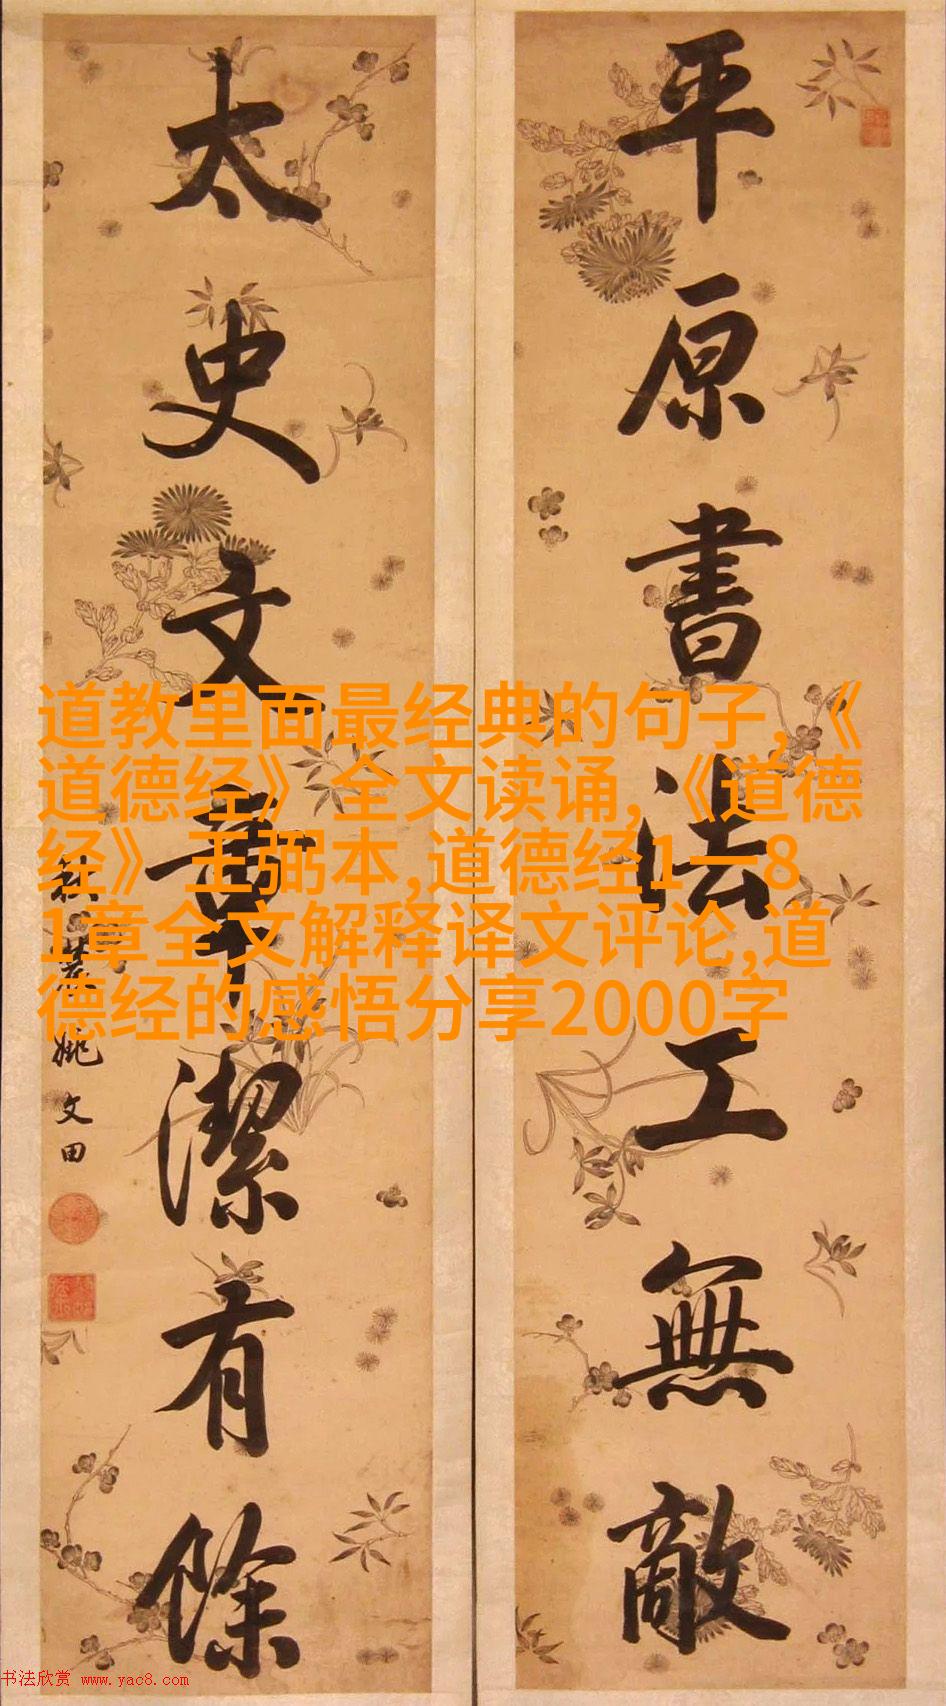 平原書法工無敵
太史文章潔有餘
姚文田
道教里面最经典的句子,《
道德经》全文读诵,《道德
经》王弼本,道德经1一8
1章全文解释译文评论,道
德经的感悟分享2000字
书法欣赏 www.yac8.com